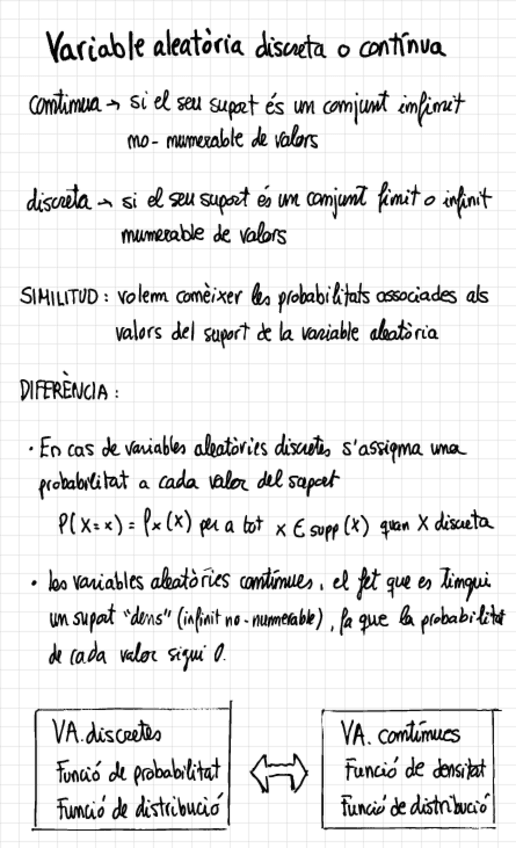 Variable aleatòria discreta o contínua
contínua → si el seu suport és un conjunt infinit
no-numerable de valors
discreta → si el seu suport és un conjunt finit o infinit
numerable de valors
SIMILITUD: volem conèixer les probabilitats associades als
valors del suport de la variable aleatòria
DIFERÈNCIA:
· En cas de variables aleatòries discretes s'assigna una
probabilitat a cada valor del suport
P(X=x) = fx(x) per a tot x ∈ supp(X) quan X discreta
· les variables aleatòries contínues, el fet que es tingui
un suport "dens" (infinit no-numerable), fa que la probabilitat
de cada valor sigui 0.
VA. discretes
Funció de probabilitat
Funció de distribució
VA. contínues
Funció de densitat
Funció de distribució